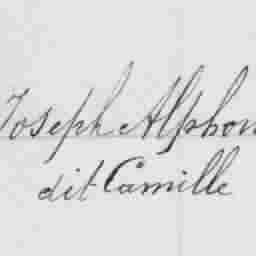 Joseph Alphon
dit Camille